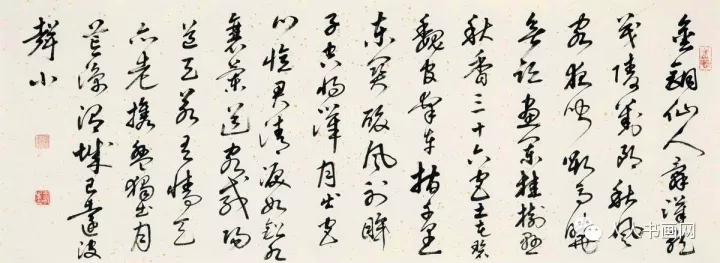 金銅仙人辭漢歌
茂陵劉郎秋風
客夜聞嘶馬曉
無跡畫闌桂樹懸
秋香三十六宮土花碧
魏官牽車指千里
東關酸風射眸
子空將漢月出宮
門憶君清淚如鉛水
衰蘭送客咸陽
道天若有情天
亦老攜盤獨出月
荒涼渭城已遠波
聲小
书画网